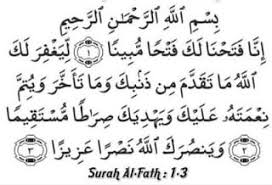 بِسْمِ اللَّهِ الرَّحْمَٰنِ الرَّحِيمِ
إِنَّا فَتَحْنَا لَكَ فَتْحًا مُبِينًا ١ لِيَغْفِرَ لَكَ
اللَّهُ مَا تَقَدَّمَ مِن ذَنْبِكَ وَمَا تَأَخَّرَ وَيُتِمَّ
نِعْمَتَهُ عَلَيْكَ وَيَهْدِيَكَ صِرَاطًا مُسْتَقِيمًا
٢ وَيَنصُرَكَ اللَّهُ نَصْرًا عَزِيزًا ٣
Surah Al-Fath : 1-3